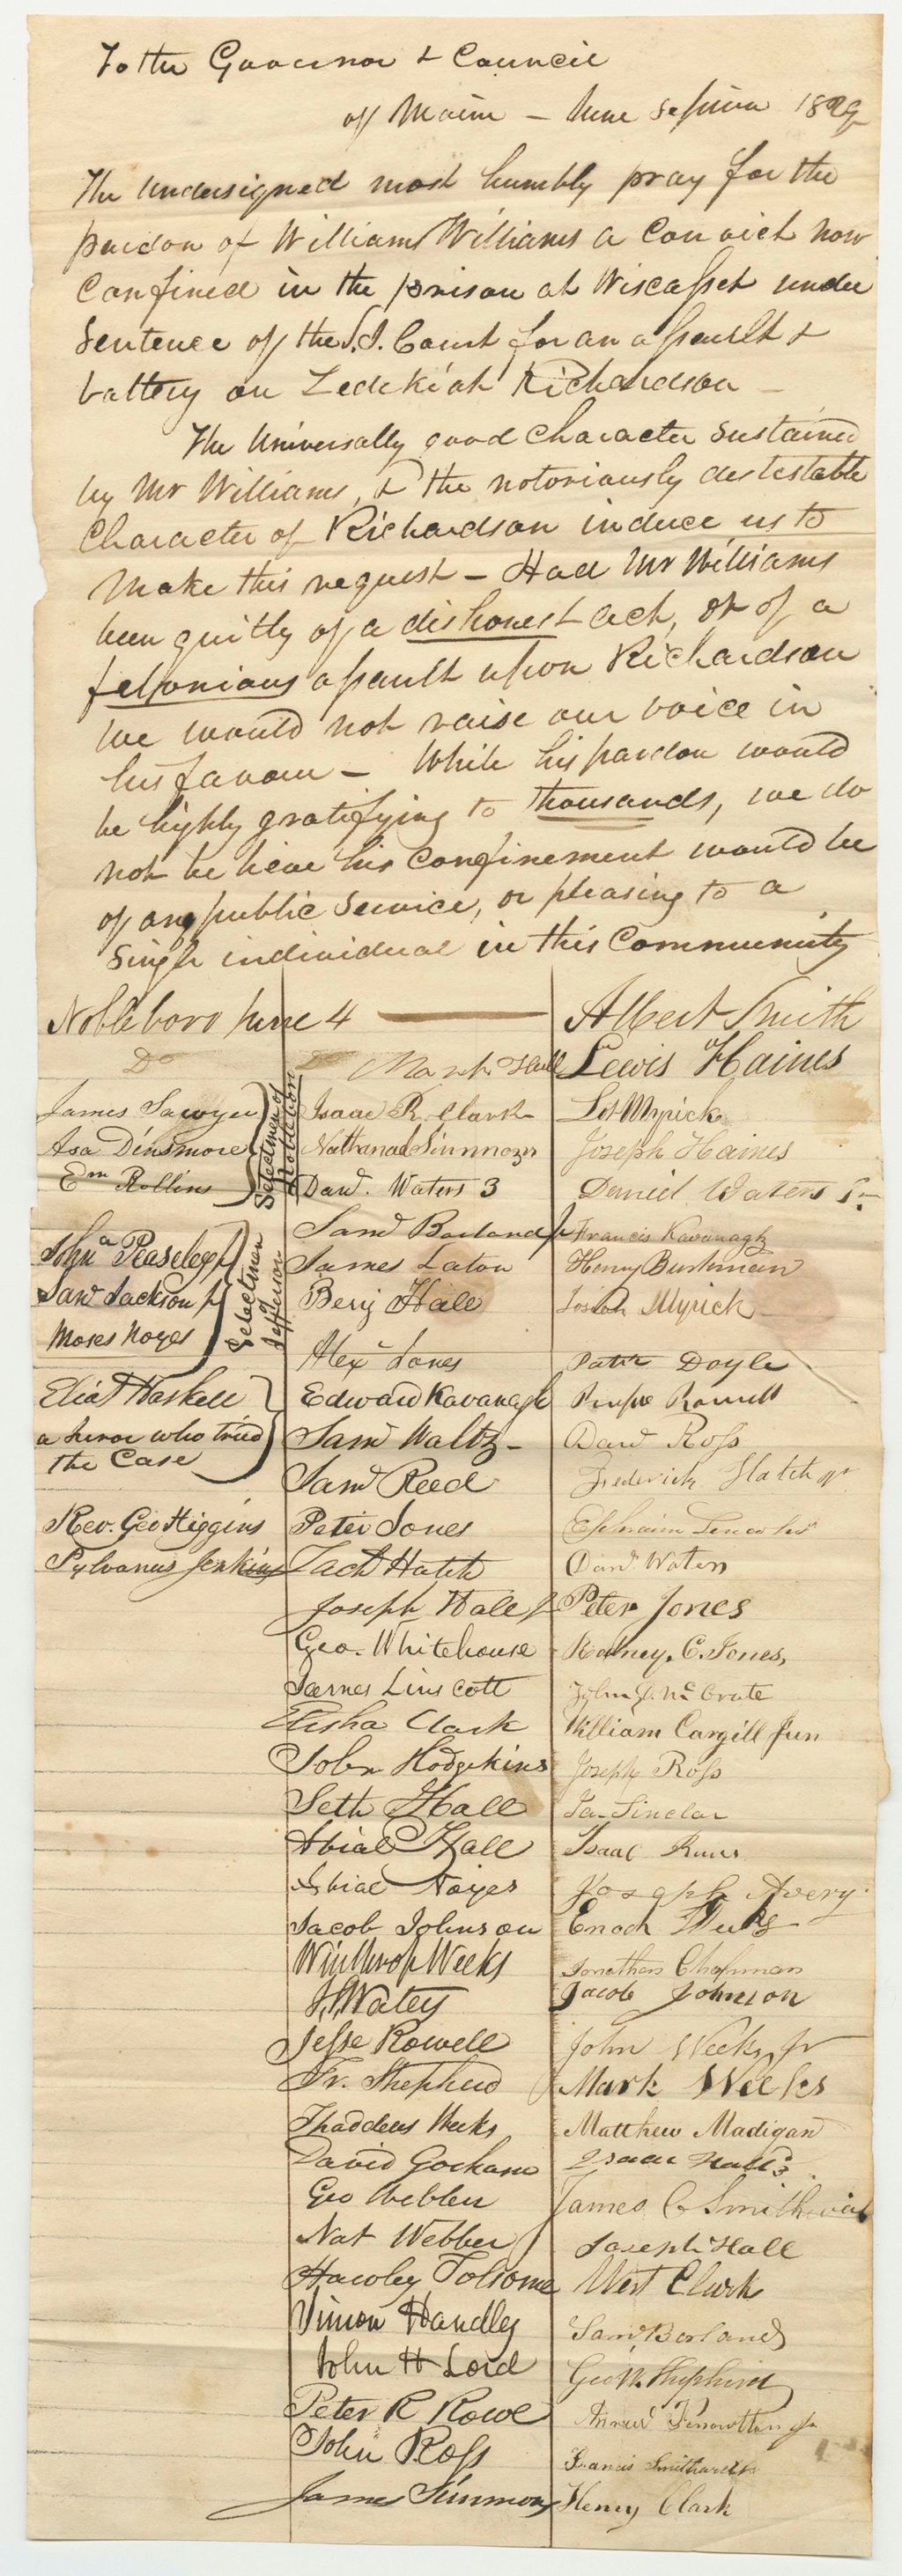 To the Governor & Council
of Maine – June Session 1829
The Undersigned most humbly pray for the
pardon of William Williams a Convict now
Confined in the prison at Wiscasset under
Sentence of the S.J. Court for an assault &
battery on Zedekiah Richardson –
The Universally good Character Sustained
by Mr Williams, & the notoriously detestable
Character of Richardson induce us to
Make this request – Had Mr Williams
been guilty of a dishonest act, or of a
felonious assault upon Richardson
we would not raise our voice in
his favour – While his pardon would
be highly gratifying to thousands, we do
not believe his Confinement would be
of any public Service, or pleasing to a
Single individual in this Community
Nobleboro June 4
Do
James Sawyer
Asa Dinsmore
Em Rollins
Selectmen of Nobleboro
Johna Peaselee Jr
Saml Jackson Jr
Moses Noyes
Selectmen of Jefferson
Eliat Haskell
a juror who tried
the Case
Rev. Geo Higgins
Sylvanus Jenkins
Mark Hall
Isaac R. Clark
Nathanael Simmons
Danl. Waters 3
Saml Borland Jr
James Laton
Benj Hall
Alexr Jones
Edward Kavanagh
Saml Waltz
Saml Reed
Peter Jones
Zach Hatch
Joseph Hall Jr
Geo. Whitehouse
James Linscott
Elisha Clark
John Hodgkins
Seth Hall
Abial Hall
Abial Noyes
Jacob Johnson
Winthrop Weeks
Jesse Rowell
Fr. Shepherd
Thaddeus Weeks
David Gorham
Geo Webber
Nat Webber
Hawley Tolsome
Simon Handley
John H Lord
Peter R Rowe
John Ross
James Simmons
Albert Smith
Lewis Haines
Lot Myrick
Joseph Haines
Daniel Waters
Francis Kavanagh
Henry Bushman
Josiah Myrick
Patk Doyle
Rowell
Danl Ross
Frederick Hatch
Ephraim
Danl Waters
Peter Jones
Rodney C. Jones,
John J. McCrate
William Cargill Jun
Joseph Ross
Ja. Sinclar
Isaac
Joseph Avery
Enoch
Jonathan Chapman
Jacob Johnson
John Weeks Jr
Mark Weeks
Matthew Madigan
Isaac Hall 3
James C Smithwick
Joseph Hall
West Clark
Saml Borland
Geo W. Shepherd
Knowlton Jr
Francis
Henry Clark